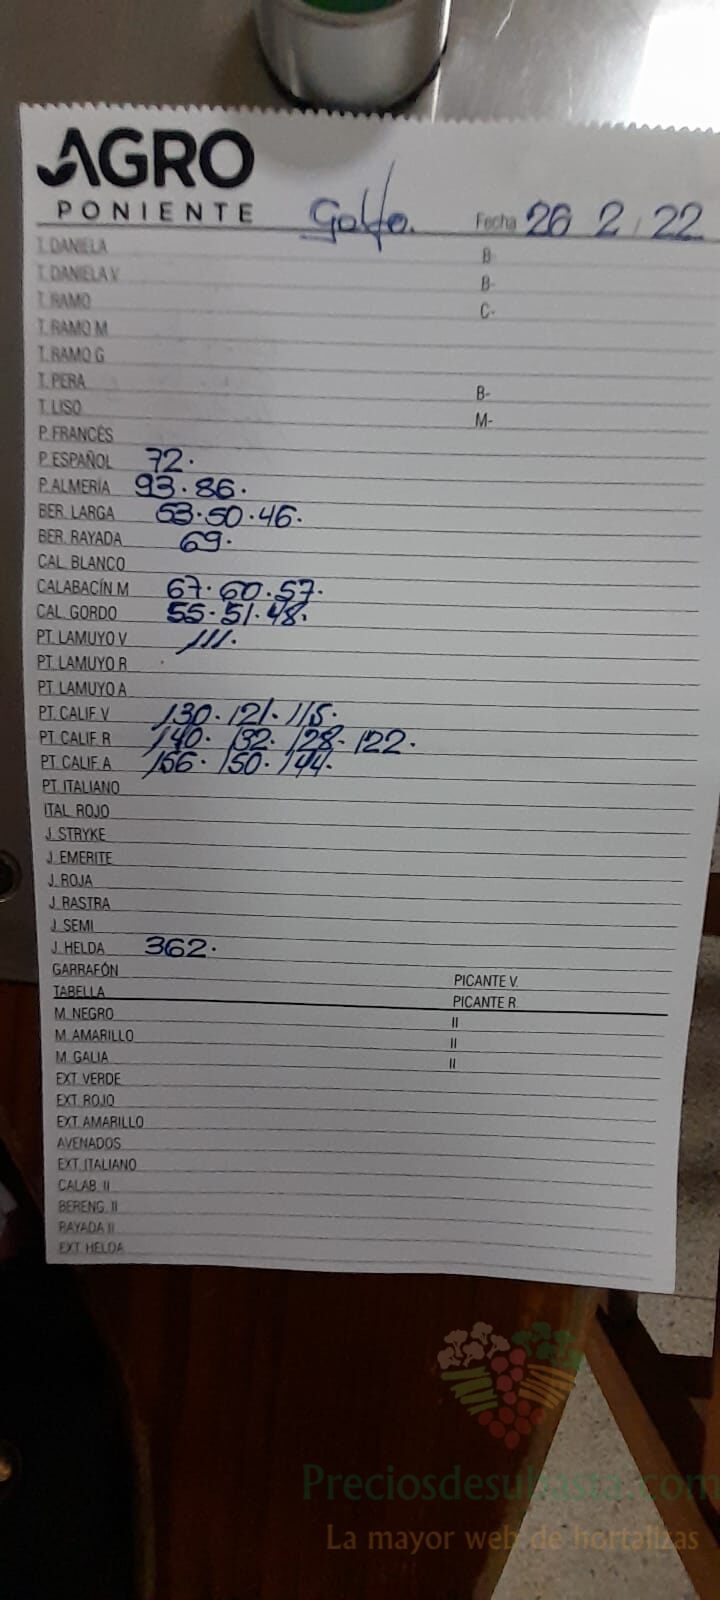 AGRO
PONIENTE Golfo. Fecha 26 2 / 22
T. DANIELA B-
T. DANIELA V B-
T. RAMO C-
T. RAMO M
T. RAMO G
T. PERA B-
T. LISO M-
P. FRANCÉS
P. ESPAÑOL 72.
P. ALMERÍA 93. 86.
BER. LARGA 53. 50. 46.
BER. RAYADA 69.
CAL. BLANCO
CALABACÍN M 67. 60. 57.
CAL. GORDO 55. 51. 48.
PT. LAMUYO V 111.
PT. LAMUYO R
PT. LAMUYO A
PT. CALIF. V 130. 121. 115.
PT. CALIF. R 140. 132. 128. 122.
PT. CALIF. A 156. 150. 144.
PT. ITALIANO
ITAL. ROJO
J. STRYKE
J. EMERITE
J. ROJA
J. RASTRA
J. SEMI
J. HELDA 362.
GARRAFÓN PICANTE V.
TABELLA PICANTE R
M. NEGRO II
M. AMARILLO II
M. GALIA II
EXT. VERDE
EXT. ROJO
EXT. AMARILLO
AVENADOS
EXT. ITALIANO
CALAB. II
BERENG. II
RAYADA II
EXT. HELDA
Preciosdesubasta.com
La mayor web de hortalizas